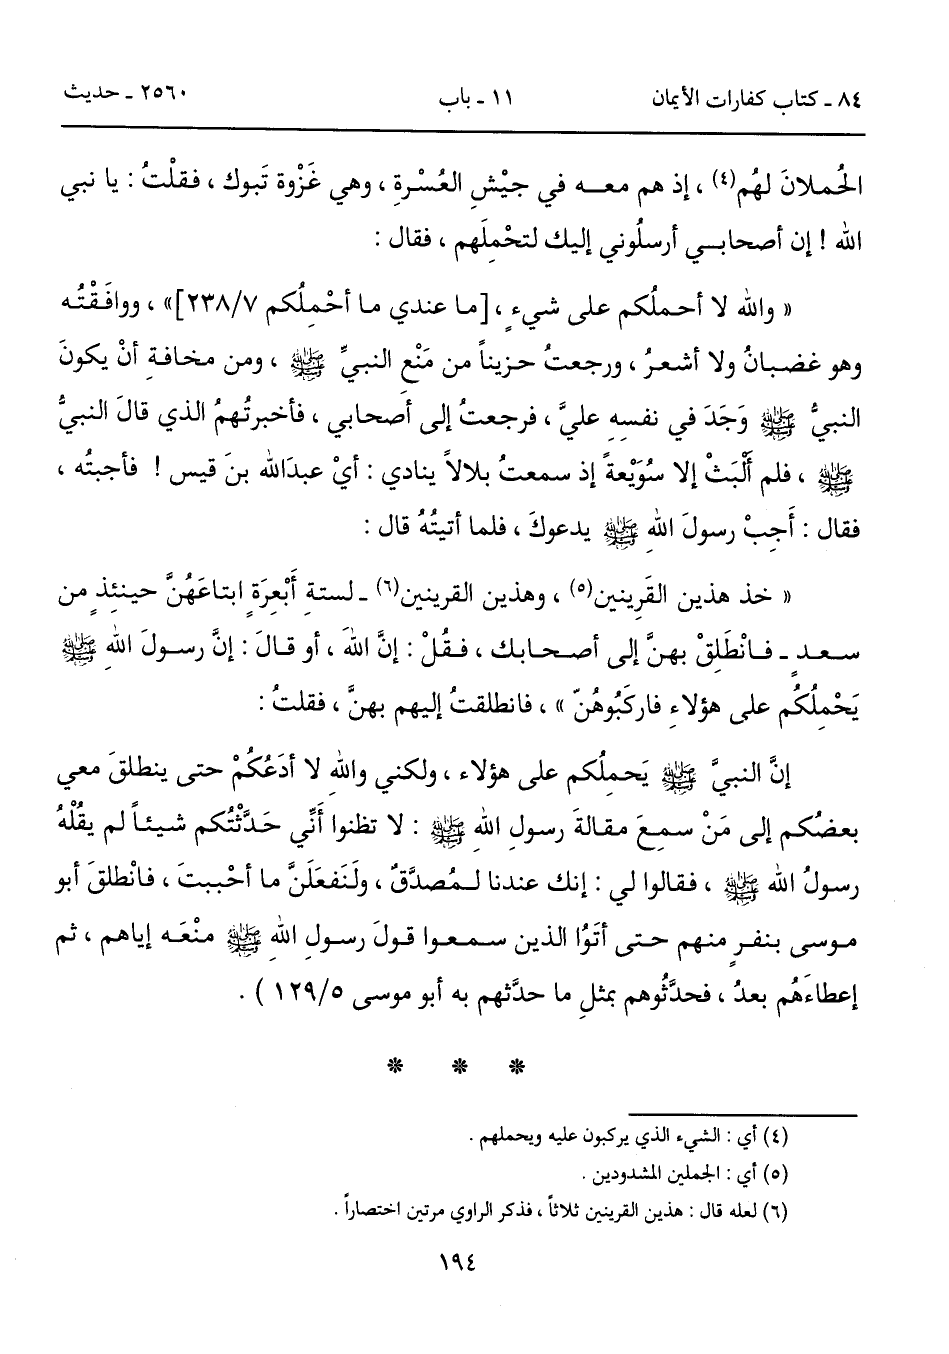 ٨٤ ـ كتاب كفارات الأيمان ١١ ـ باب ٢٥٦٠ ـ حديث
الحُملانَ لهُم(٤) ، إذ هم معـه في جيْشِ العُسْرةِ ، وهي غَزْوة تَبوك ، فقلْتُ : يا نبي
الله ! إن أصحابـي أرسلُوني إليك لتحْمِلَهم ، فقال :
« والله لا أحملُكم على شيءٍ ، [ما عندي ما أحْمِلُكم ٢٣٨/٧]» ، ووافَقْتُـه
وهو غضبانُ ولا أشعرُ ، ورجعتُ حزيناً من مَنْعِ النبيِّ ﷺ ، ومن مخافةِ أنْ يكونَ
النبيُّ ﷺ وَجَدَ في نفسهِ عليَّ ، فرجعتُ إلى أصحابي ، فأخبرتُهمُ الذي قالَ النبيُّ
ﷺ ، فلم ألْبَثْ إلا سُوَيْعةً إذ سمعتُ بلالاً ينادي : أيْ عبدَالله بنَ قيس ! فأجبتُه ،
فقال : أَجِبْ رسولَ اللهِ ﷺ يدعوكَ ، فلما أتيتُهُ قال :
« خذ هذين القَرِينين(٥) ، وهذين القرينين(٦) ـ لستةِ أَبْعِرَةٍ ابتاعَهُنَّ حينئذٍ من
سعدٍ ـ فـانْطَلِقْ بهنَّ إلى أصـحـابك ، فـقُلْ : إنَّ اللهَ ، أو قـالَ : إنَّ رسـولَ اللهِ ﷺ
يَحْمِلُكُم على هؤلاءِ فاركَبُوهُنّ » ، فانطلقتُ إليهم بهنَّ ، فقلتُ :
إنَّ النبيَّ ﷺ يَحمِلُكم على هؤلاء ، ولكني واللهِ لا أدَعُكُمْ حتى ينطلقَ معي
بعضُكم إلى مَنْ سمِعَ مقالةَ رسولِ اللهِ ﷺ : لا تظنوا أَنِّي حَدَّثْتُكم شيئـاً لم يقُلْهُ
رسولُ الله ﷺ ، فقالوا لي : إنك عندنا لـمُصدَّقٌ ، ولَنَفعَلَنَّ ما أحْببتَ ، فانْطلقَ أبو
موسى بنفرٍ منهم حـتى أتَوُا الذين سـمعوا قولَ رسولِ اللهِ ﷺ منْعَـه إياهم ، ثم
إعطاءَهُم بعدُ ، فحدَّثُوهم بمثلِ ما حدَّثهم به أبو موسى ١٢٩/٥ ) .
* * *
(٤) أي : الشيء الذي يركبون عليه ويحملهم .
(٥) أي : الجملين المشدودين .
(٦) لعله قال : هذين القرينين ثلاثاً ، فذكر الراوي مرتين اختصاراً .
١٩٤